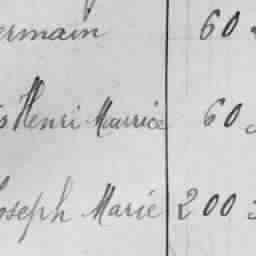 ermain 60
s Henri Maurice 60
oseph Marie 200